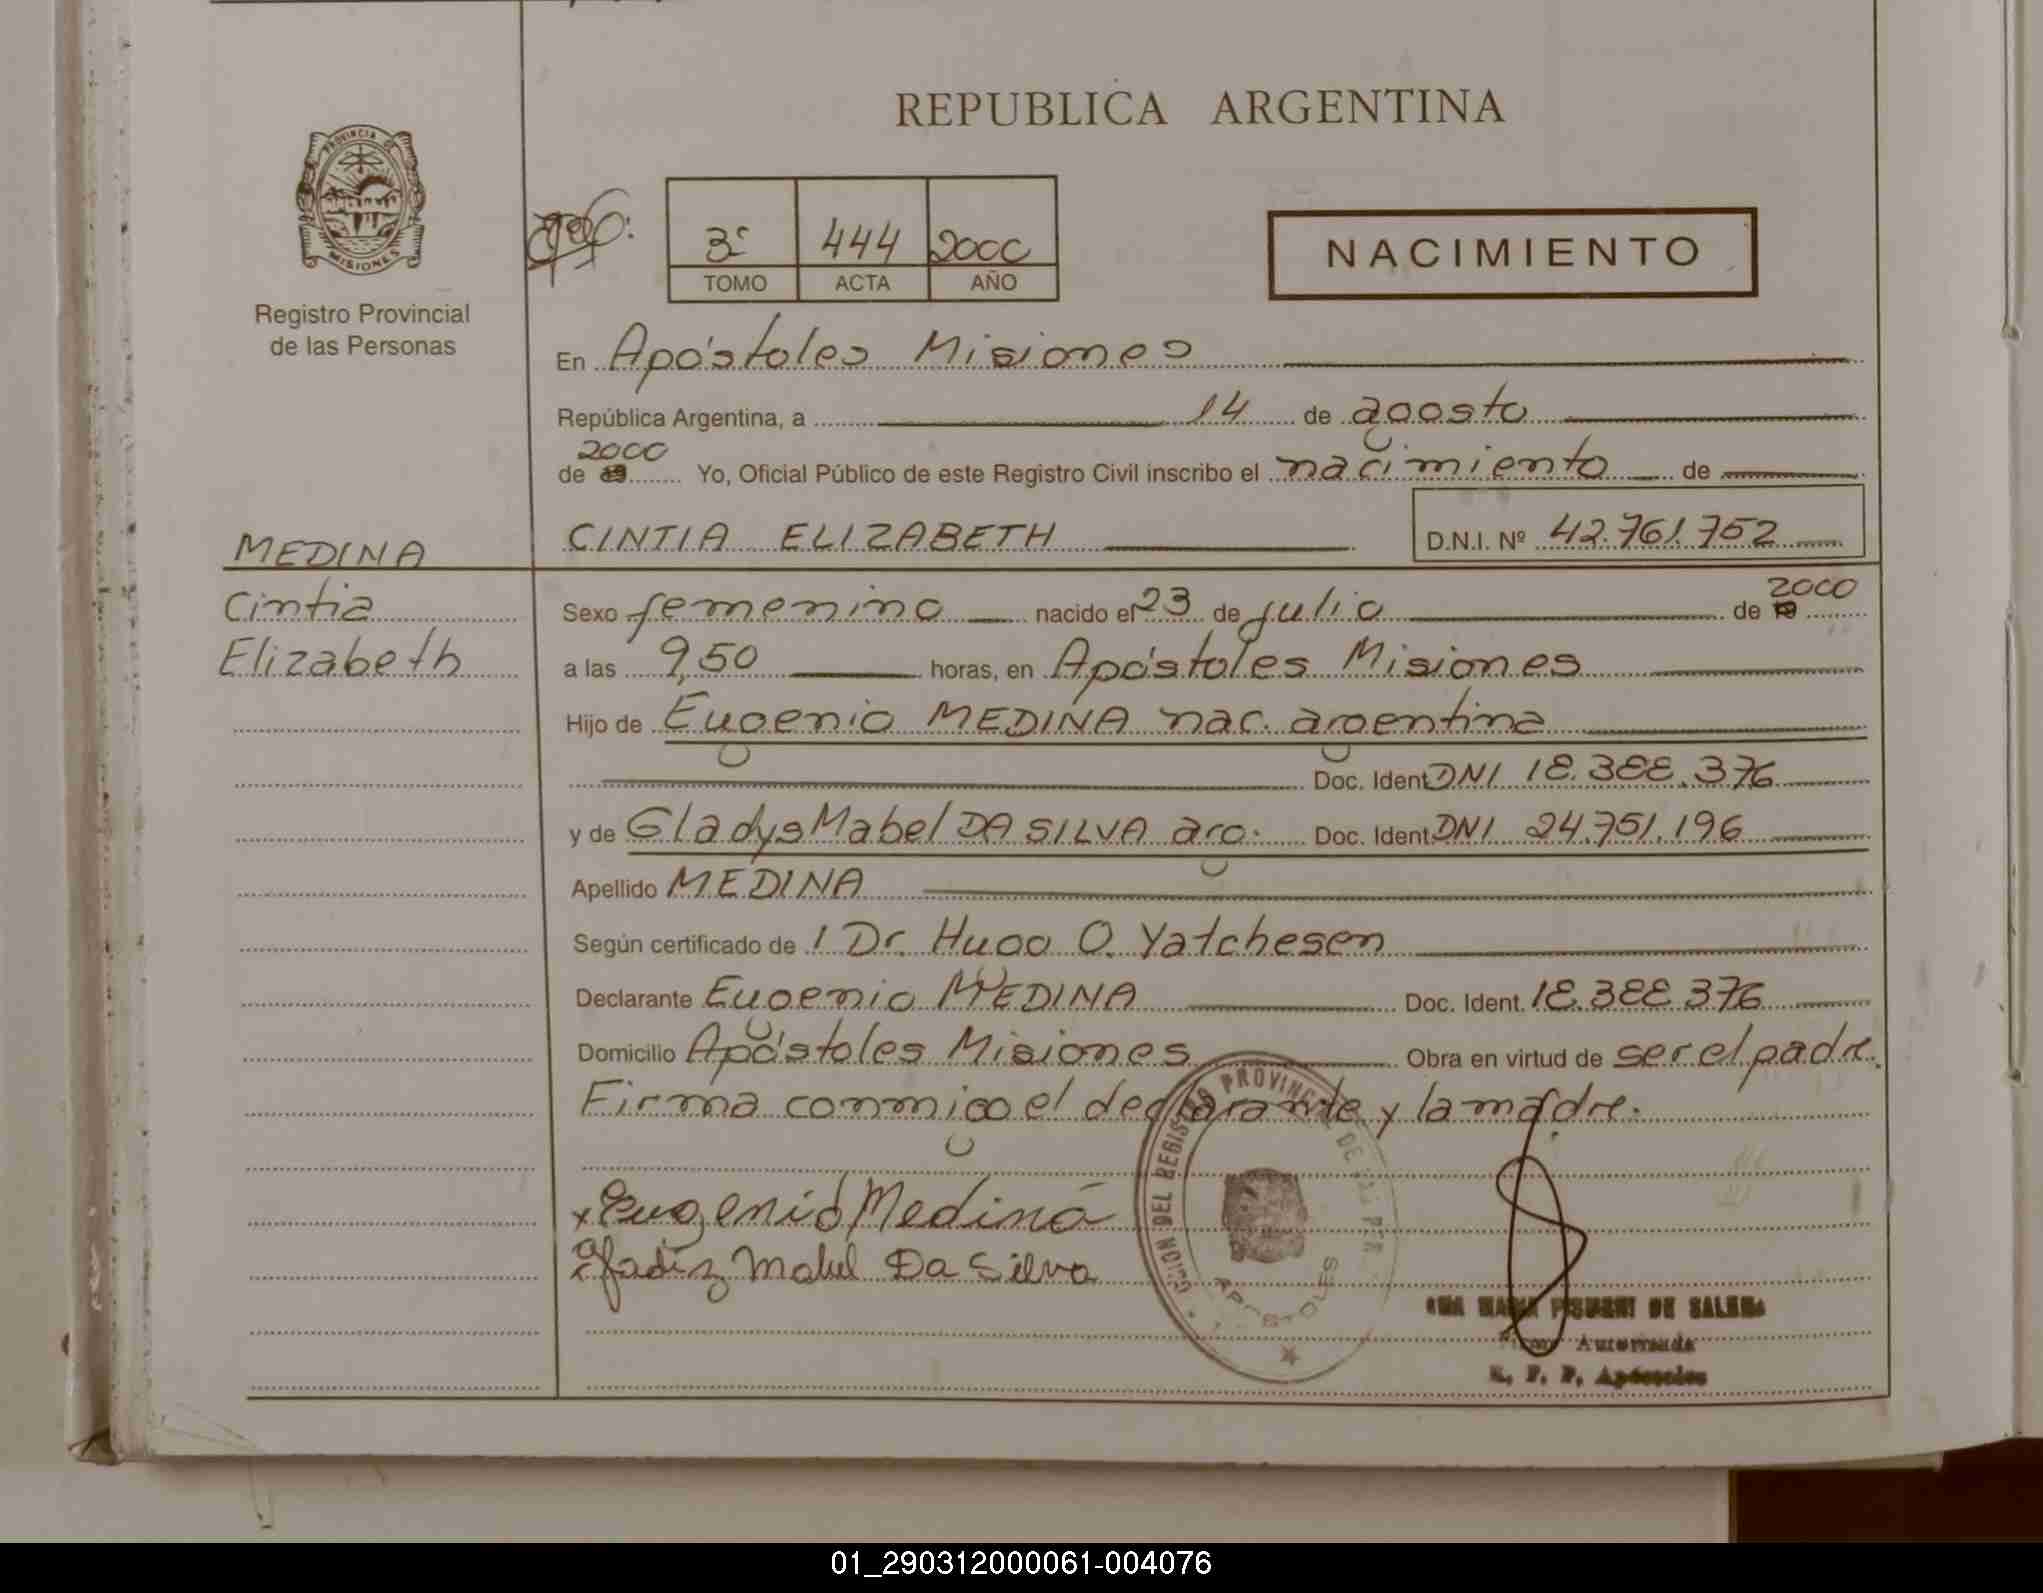 REPUBLICA ARGENTINA
PROVINCIA DE
MISIONES
Registro Provincial
de las Personas
3º 444 2000
TOMO ACTA AÑO
NACIMIENTO
En Apóstoles Misiones
República Argentina, a 14 de agosto
2000
de 19 Yo, Oficial Público de este Registro Civil inscribo el nacimiento de
MEDINA
CINTIA ELIZABETH D.N.I. Nº 42.761.752
Cintia
Elizabeth
Sexo femenino nacido el 23 de julio de 19 2000
a las 9,50 horas, en Apóstoles Misiones
Hijo de Eugenio MEDINA nac. argentina
Doc. Ident. DNI 18.388.376
y de Gladys Mabel DA SILVA arg. Doc. Ident. DNI 24.751.196
Apellido MEDINA
Según certificado de 1 Dr. Hugo O. Yatchesen
Declarante Eugenio MEDINA Doc. Ident. 18.388.376
Domicilio Apóstoles Misiones Obra en virtud de ser el padre.
Firma conmigo el declarante y la madre.
x Eugenio Medina
Gladiz Mabel Da Silva
DEL REGISTRO PROVINCIAL DE
APOSTOLES
DE
Firma Autorizada
R. P. P. Apóstoles
01_290312000061-004076